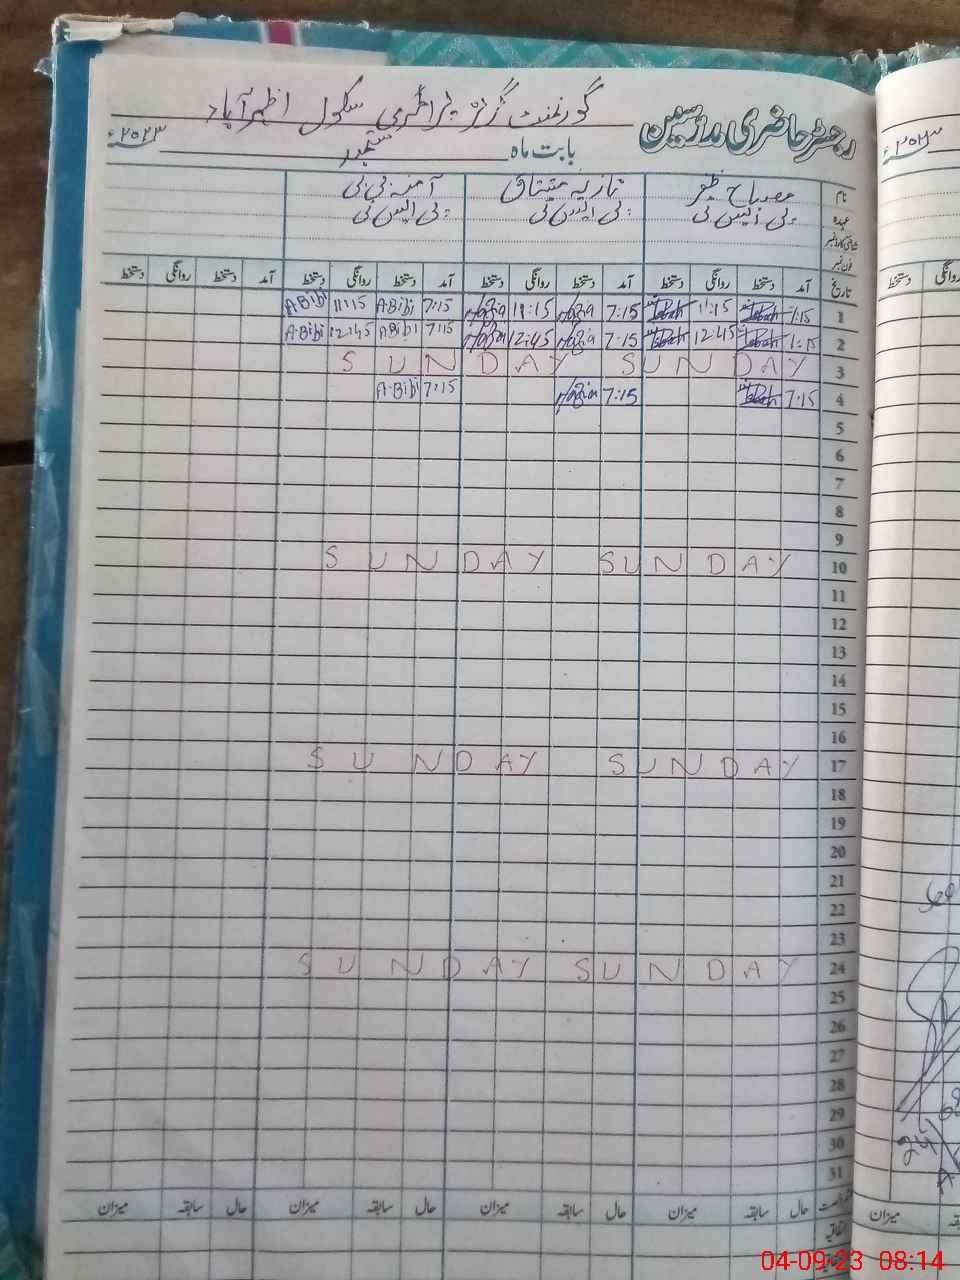 گورنمنٹ گرلز پرائمری سکول اظہرآباد
رجسٹر حاضری مدرسین
بابت ماہ ستمبر ۲۰۲۳ء
نام مصباح ظفر نازیہ مشتاق آمنہ بی بی
عہدہ پی ایس ٹی پی ایس ٹی پی ایس ٹی
شناختی کارڈ نمبر
فون نمبر
تاریخ آمد دستخط روانگی دستخط آمد دستخط روانگی دستخط آمد دستخط روانگی دستخط آمد دستخط روانگی دستخط
1 7:15 11:15 7:15 Nazia 11:15 Nazia 7:15 A.Bibi 11:15 A.Bibi
2 12:45 7:15 Nazia 12:45 Nazia 7:15 A.Bibi 12:45 A.Bibi
3 SUNDAY SUNDAY
4 7:15 7:15 Nazia 7:15 A.Bibi
5
6
7
8
9
10 SUNDAY SUNDAY
11
12
13
14
15
16
17 SUNDAY SUNDAY
18
19
20
21
22
23
24 SUNDAY SUNDAY
25
26
27
28
29
30
31
حال سابقہ میزان حال سابقہ میزان حال سابقہ میزان حال سابقہ میزان
اتفاقیہ
۲۰۲۳ء
روانگی دستخط
میزان
04-09-23 08:14